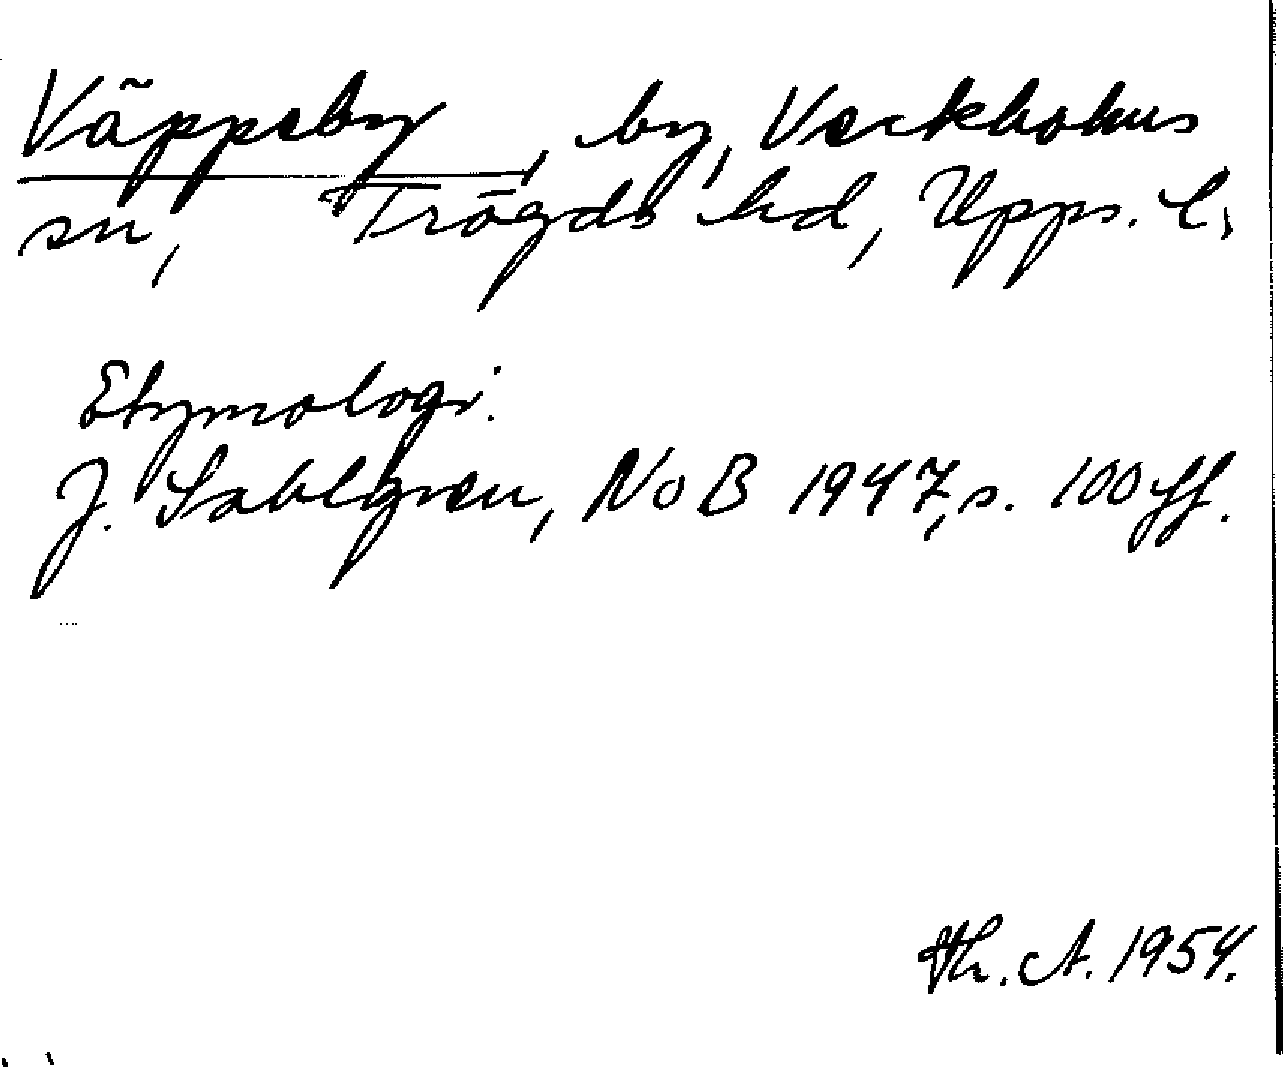 Väppeby, by, Veckholms
sn, Trögds hd, Upps. l.
Etymologi:
J. Sahlgren, NoB 1947, s. 100 ff.
Th. A. 1954.